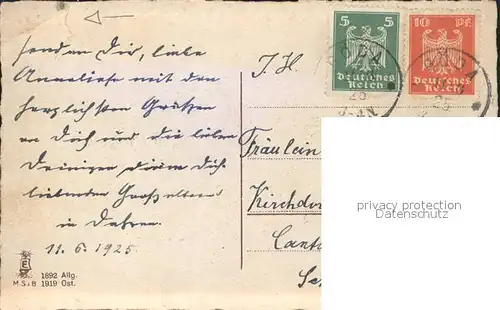 senden Dir, liebe
Anneliese mit den
herzlichsten Grüßen
an Dich und die lieben
Deinigen Deine Dich
liebenden Großeltern
in
11.6.1925.
1892 Allg.
M.S.i.B 1919 Ost.
5 5
Deutsches
Reich
10 PF
Deutsches
Reich
T. H.
Fräulein
Kirchdor
Cant
privacy protection
Datenschutz